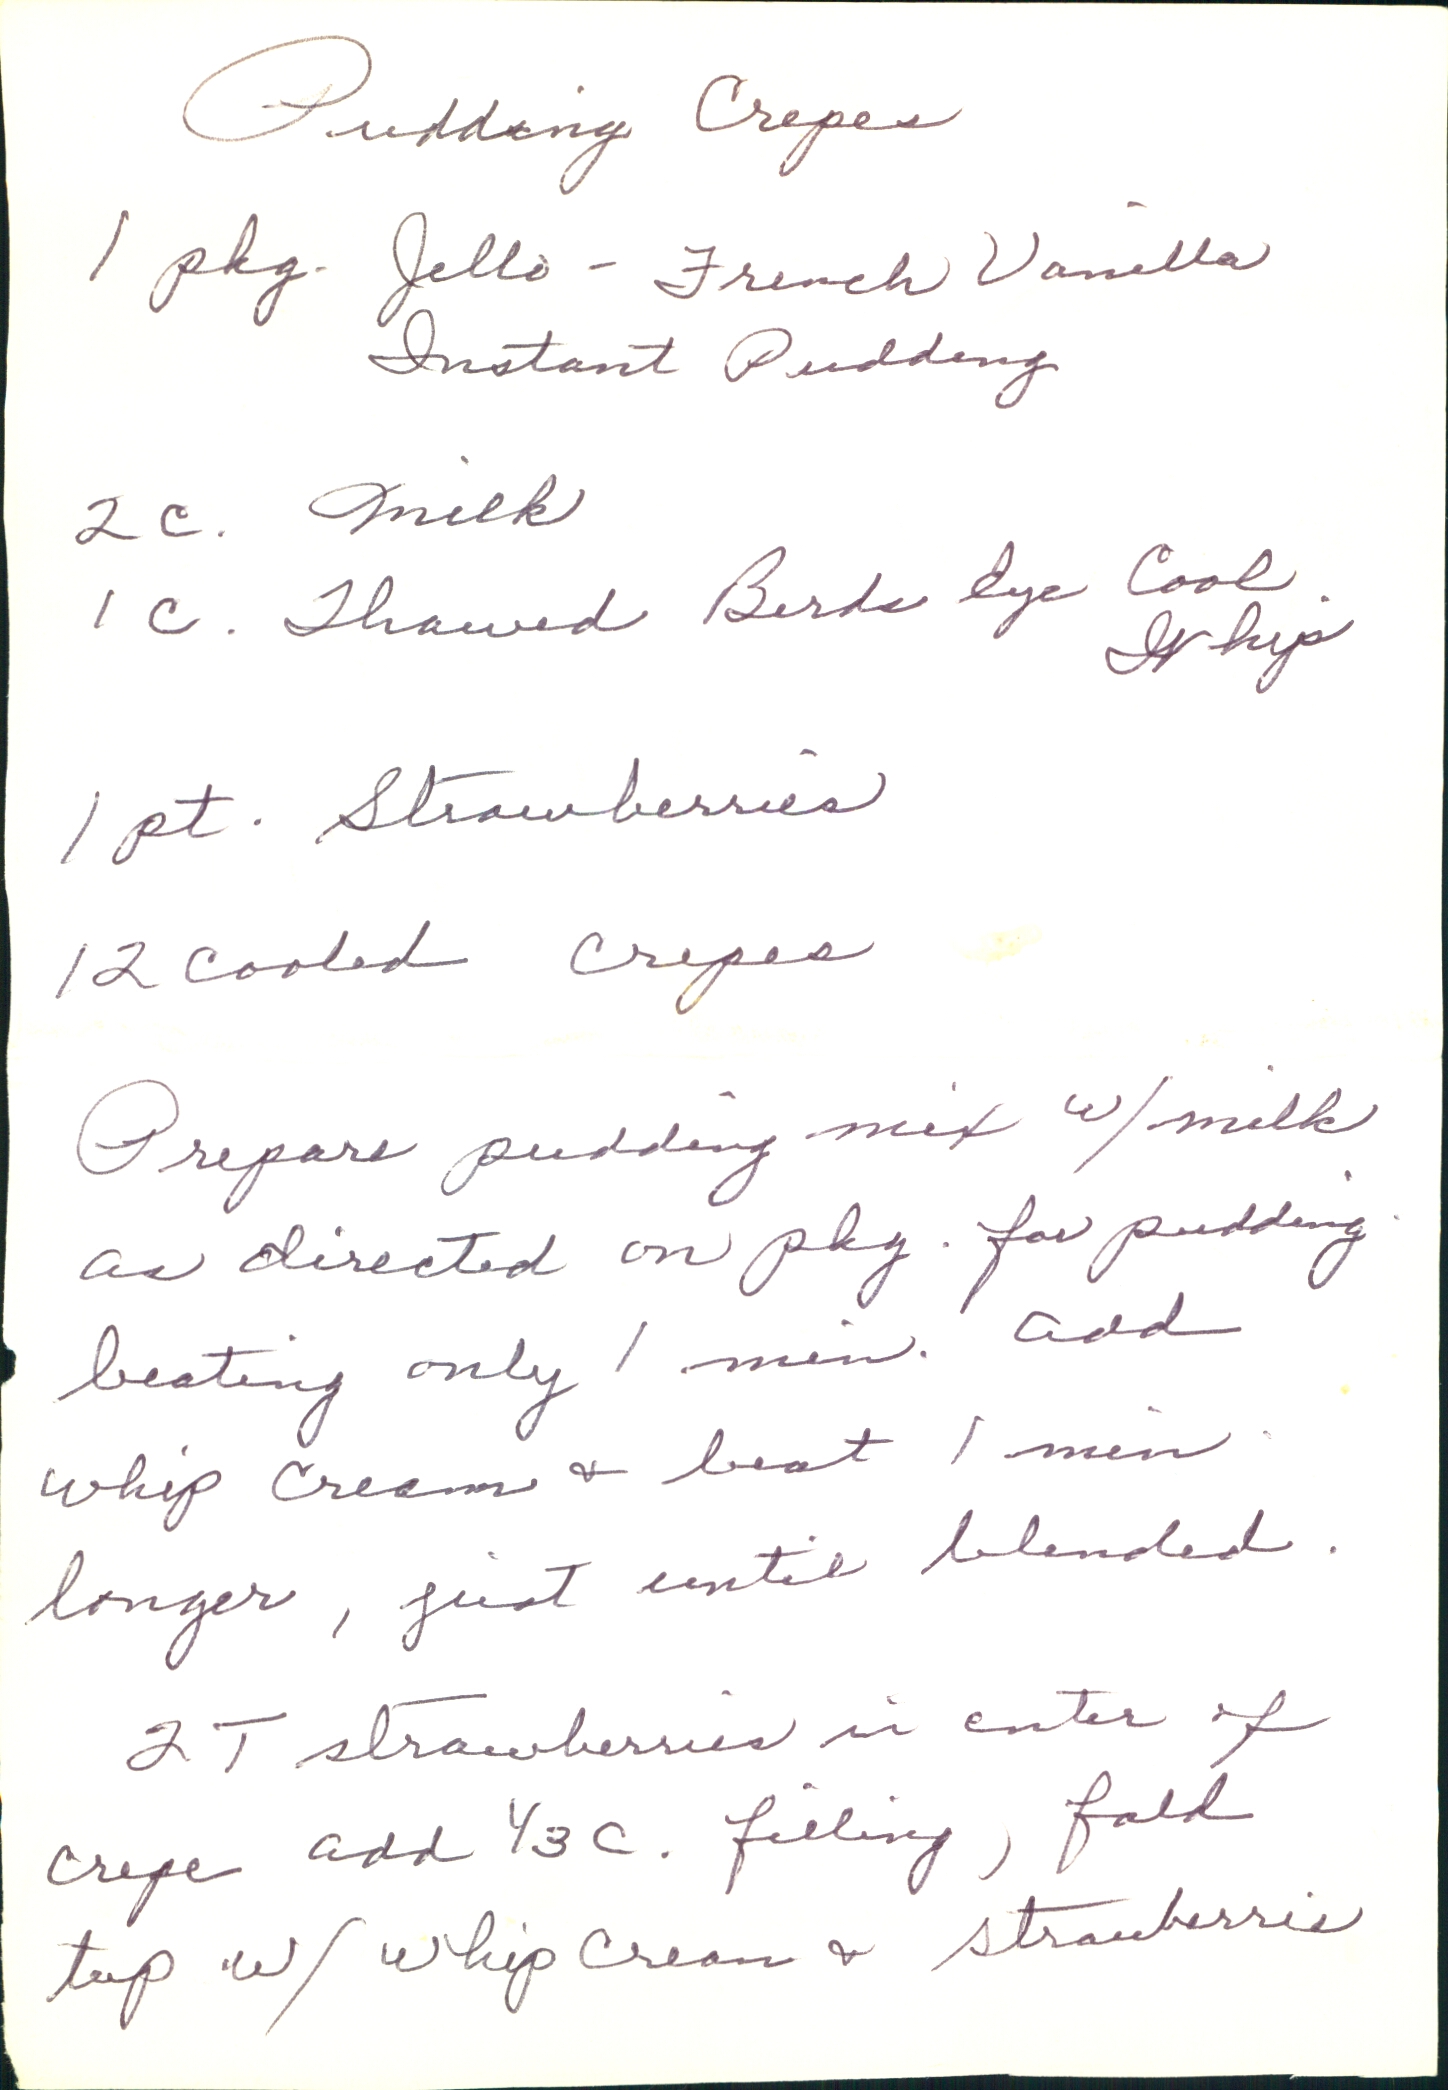 Pudding Crepes
1 pkg. Jello - French Vanilla
Instant Pudding
2 c. Milk
1 c. Thawed Birds Eye Cool
Whip
1 pt. Strawberries
12 cooled crepes
Prepare pudding mix w/ milk
as directed on pkg. for pudding.
beating only 1 min. add
whip cream & beat 1 min.
longer, just until blended.
2 T strawberries in center of
crepe add 1/3 c. filling, fold
top w/ whip cream & strawberries